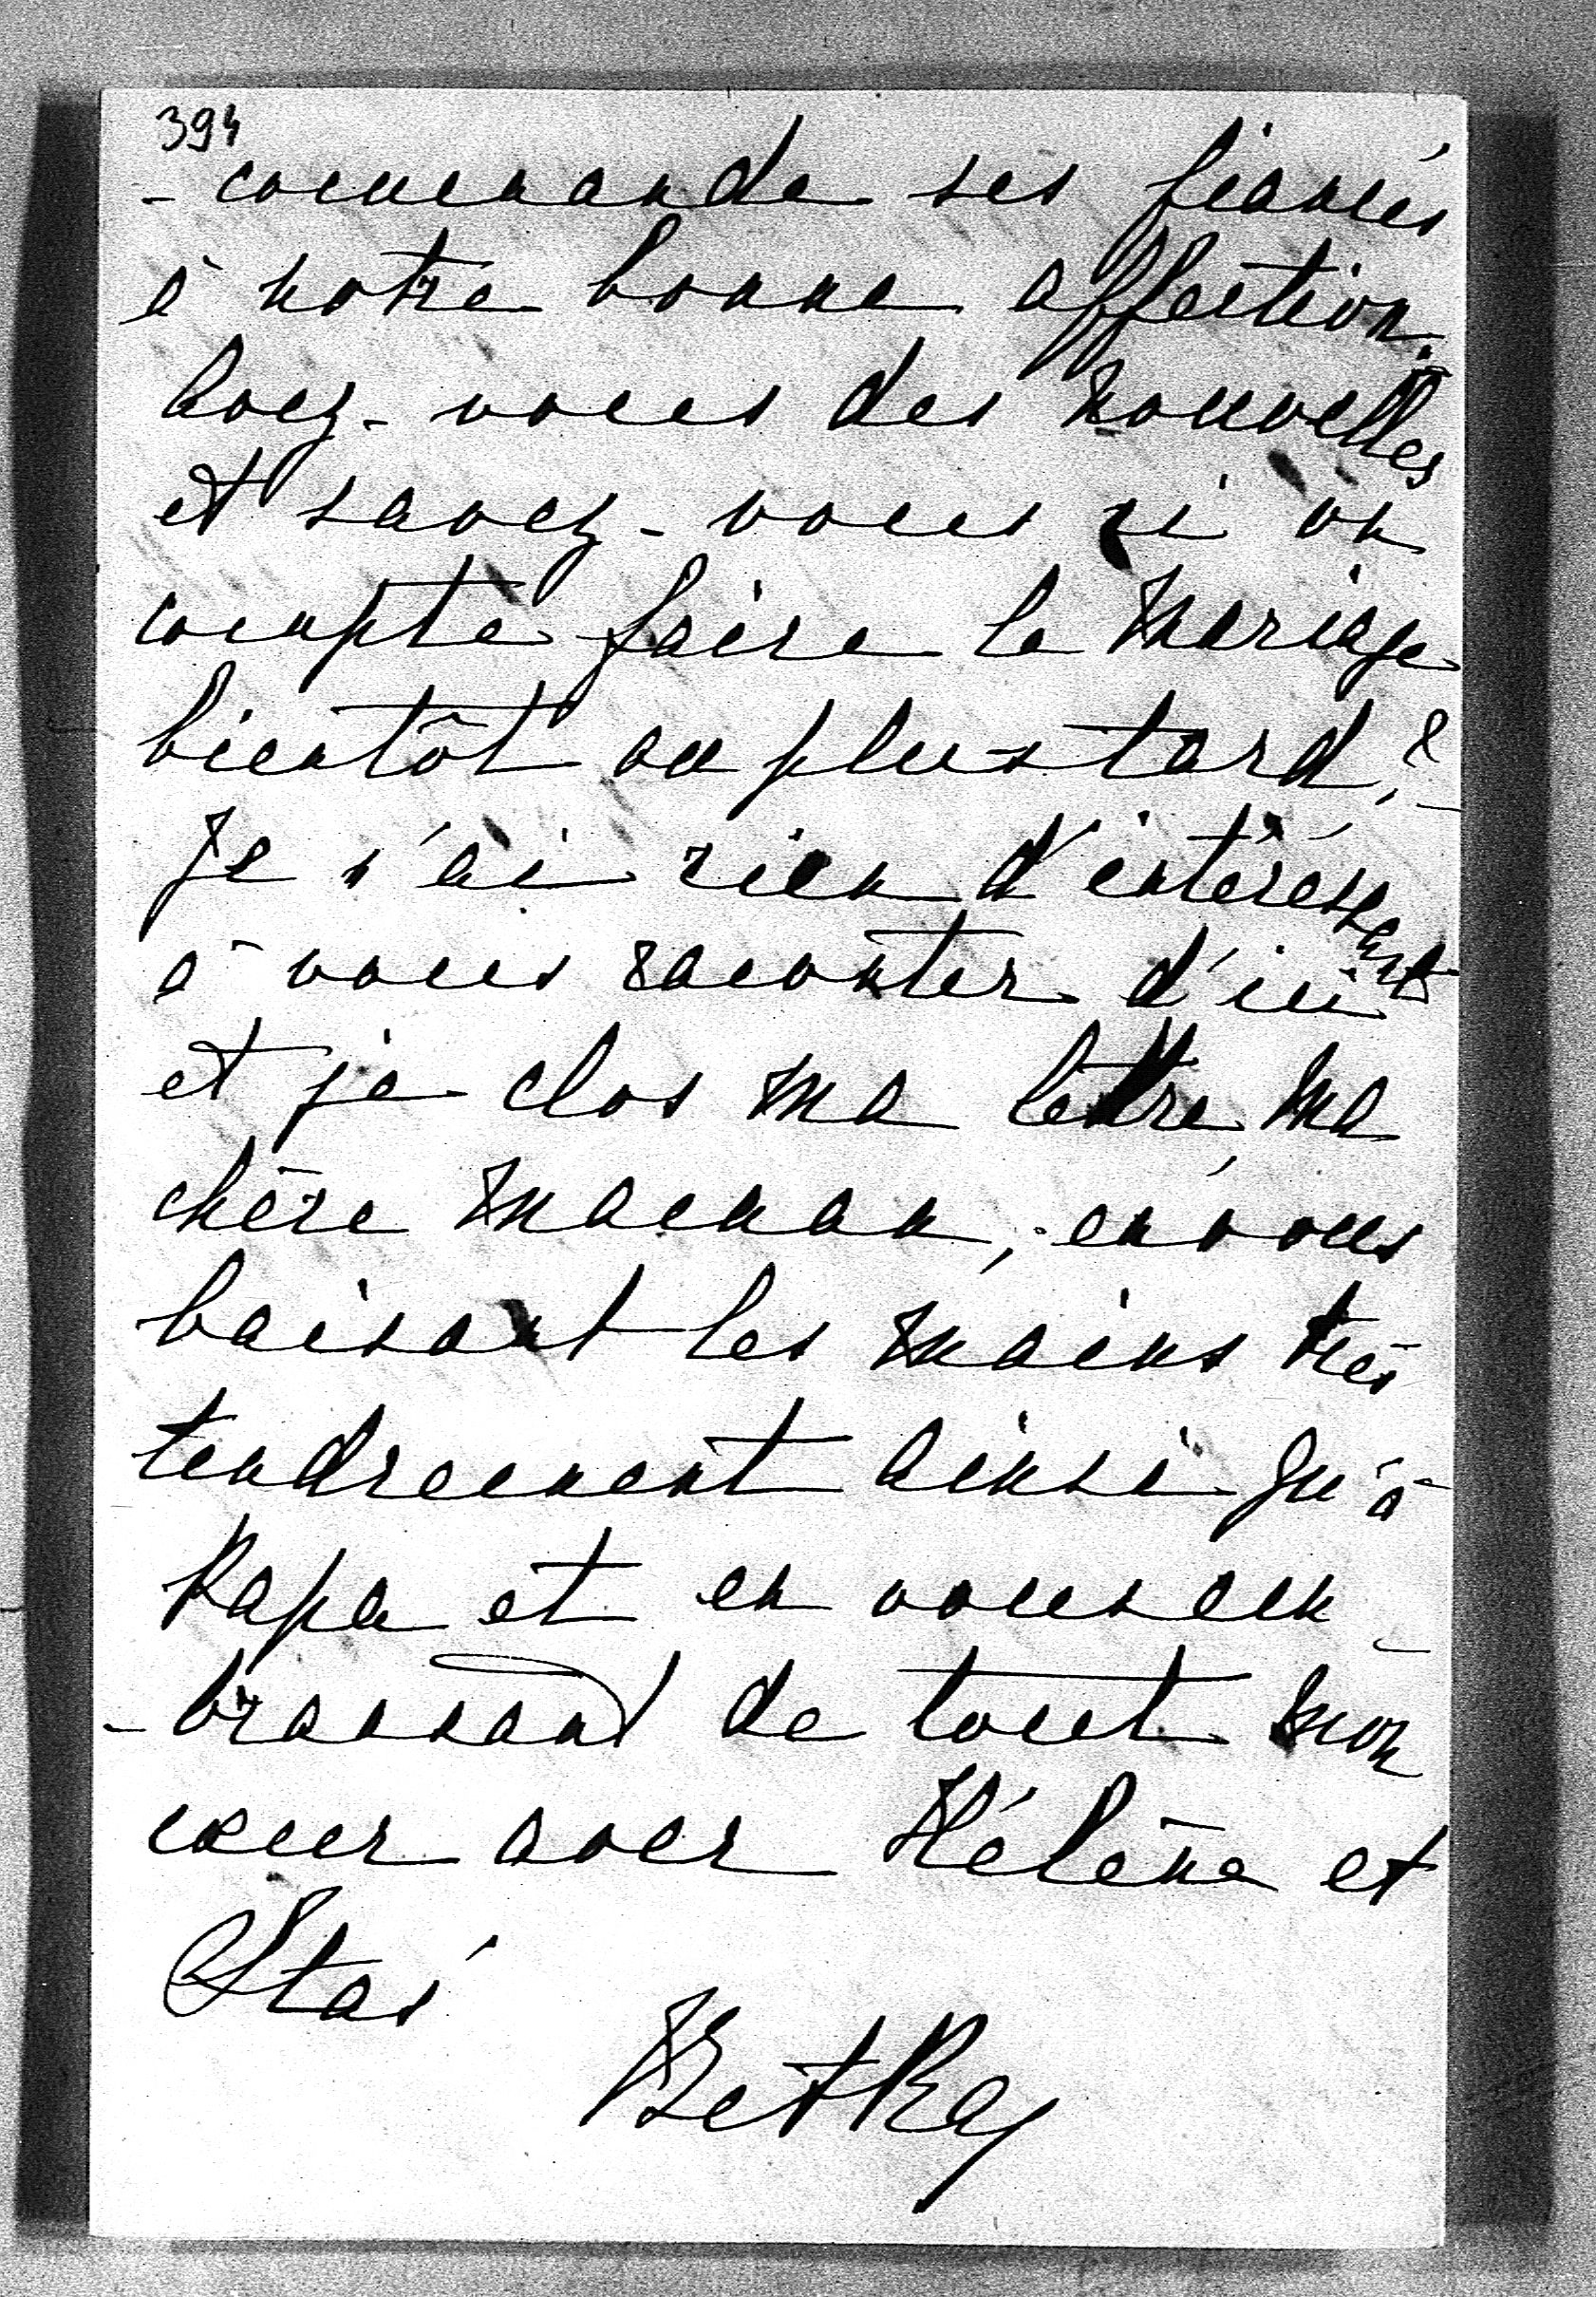 394
- commande ses fiancés
à notre bonne affection.
Avez-vous des nouvelles
et savez-vous si on
compte faire le mariage
bientôt ou plus tard?
Je n'ai rien d'intéréssant
à vous raconter d'ici
et je clos ma lettre ma
chère maman, en vous
baisant les mains très
tendrement ainsi qu'à
Papa et en vous em-
-brassant de tout mon
cœur avec Hélène et
Staś
Betka